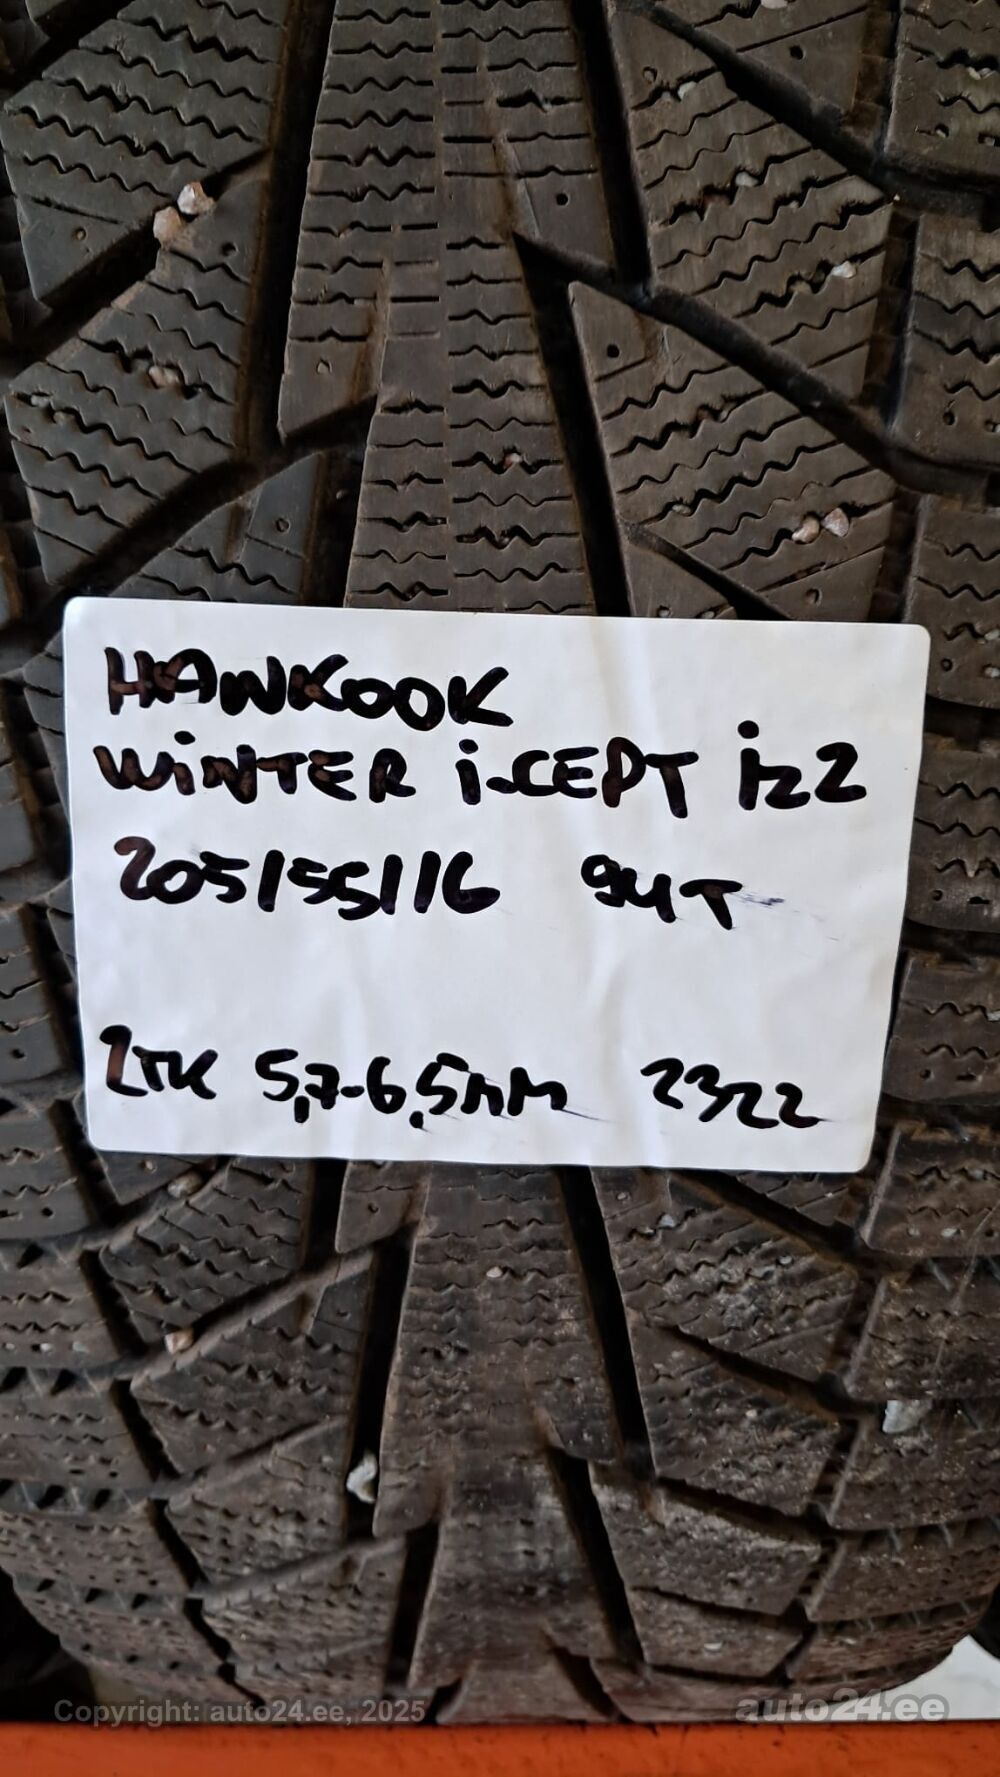 HANKOOK
WINTER i-CEPT iz2
205/55/16 94T
2TK 5,7-6,5MM 2322
Copyright: auto24.ee, 2025
auto24.ee